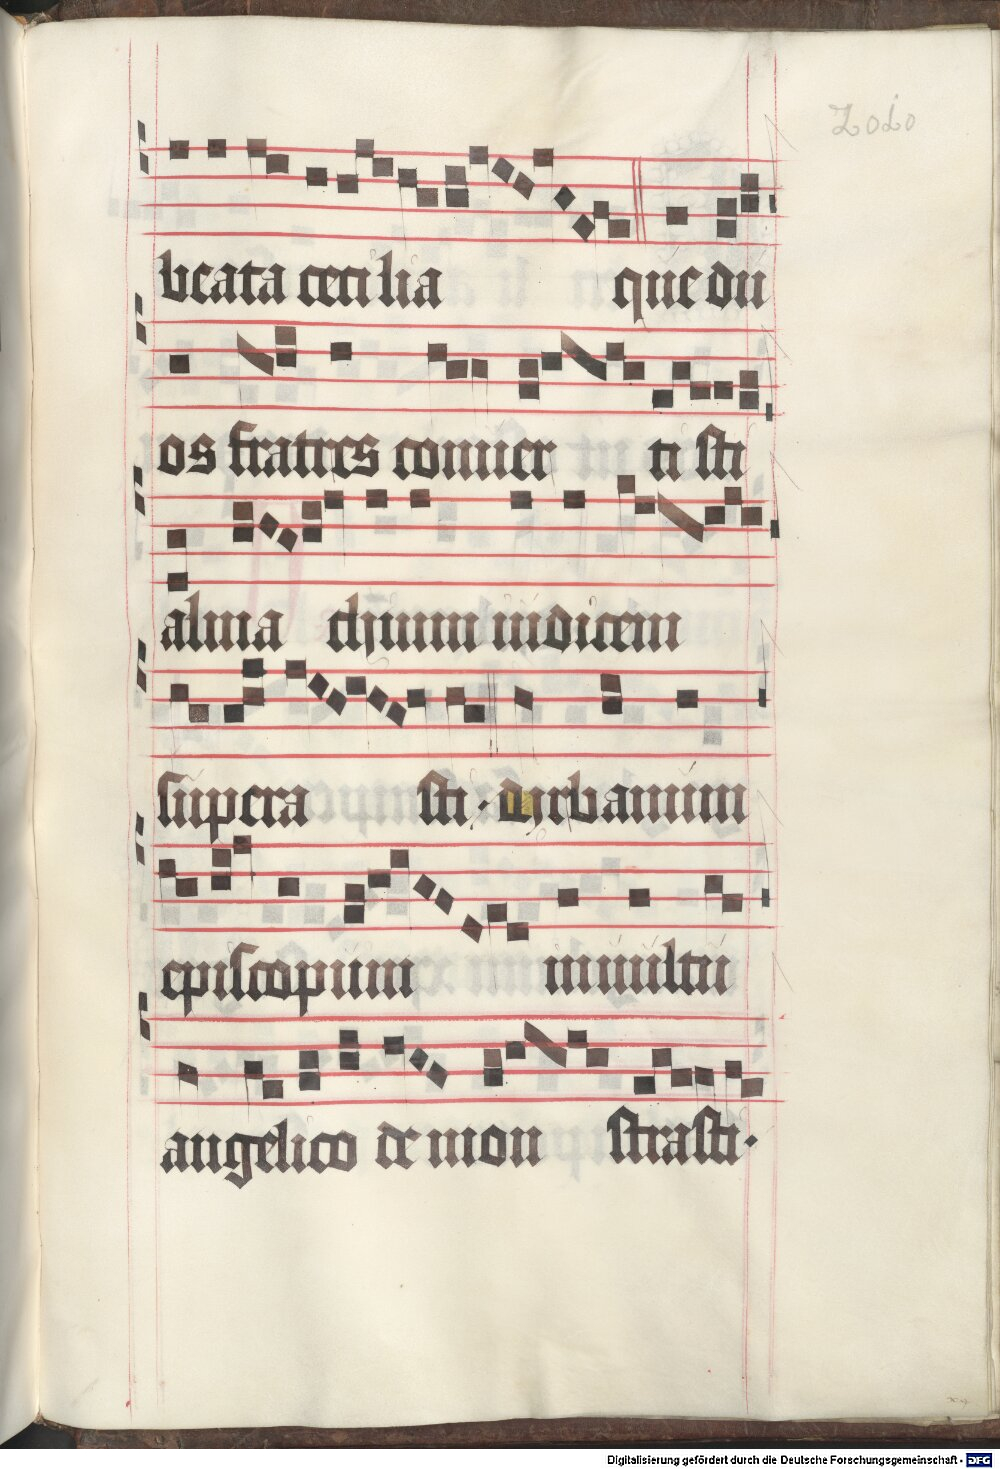 beata cecilia que du
os fratres conuer ti sti
alma chum iudicem
supera sti. Vrbanum
episcopum in uultu
angelico de mon strasti.
Digitalisierung gefördert durch die Deutsche Forschungsgemeinschaft - DFG